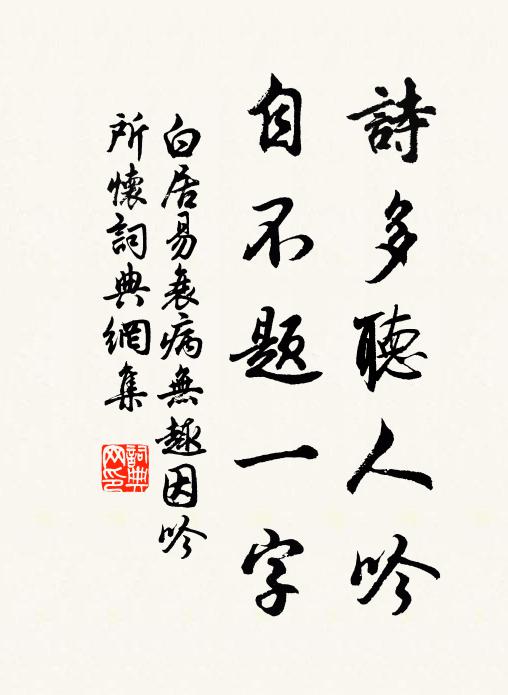 詩多聽人吟
自不题一字
白居易衰病無趣因吟
所懷詞典網集
詞典网印